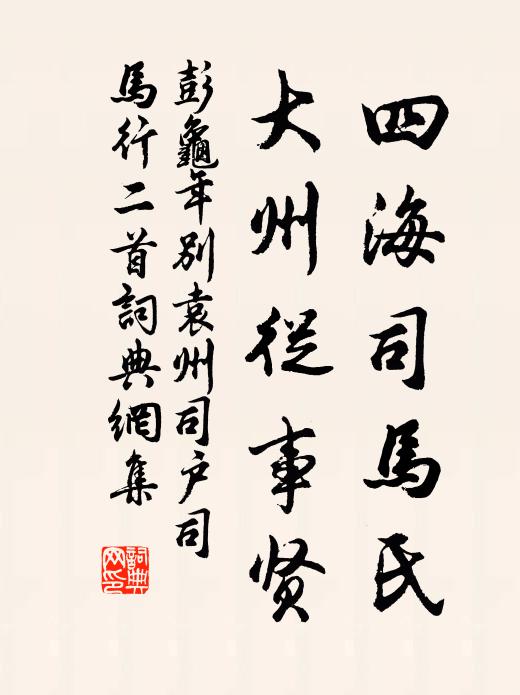 四海司馬氏
大州從事贤
彭龜年别袁州司户司
馬行二首詞典網集
詞典网印